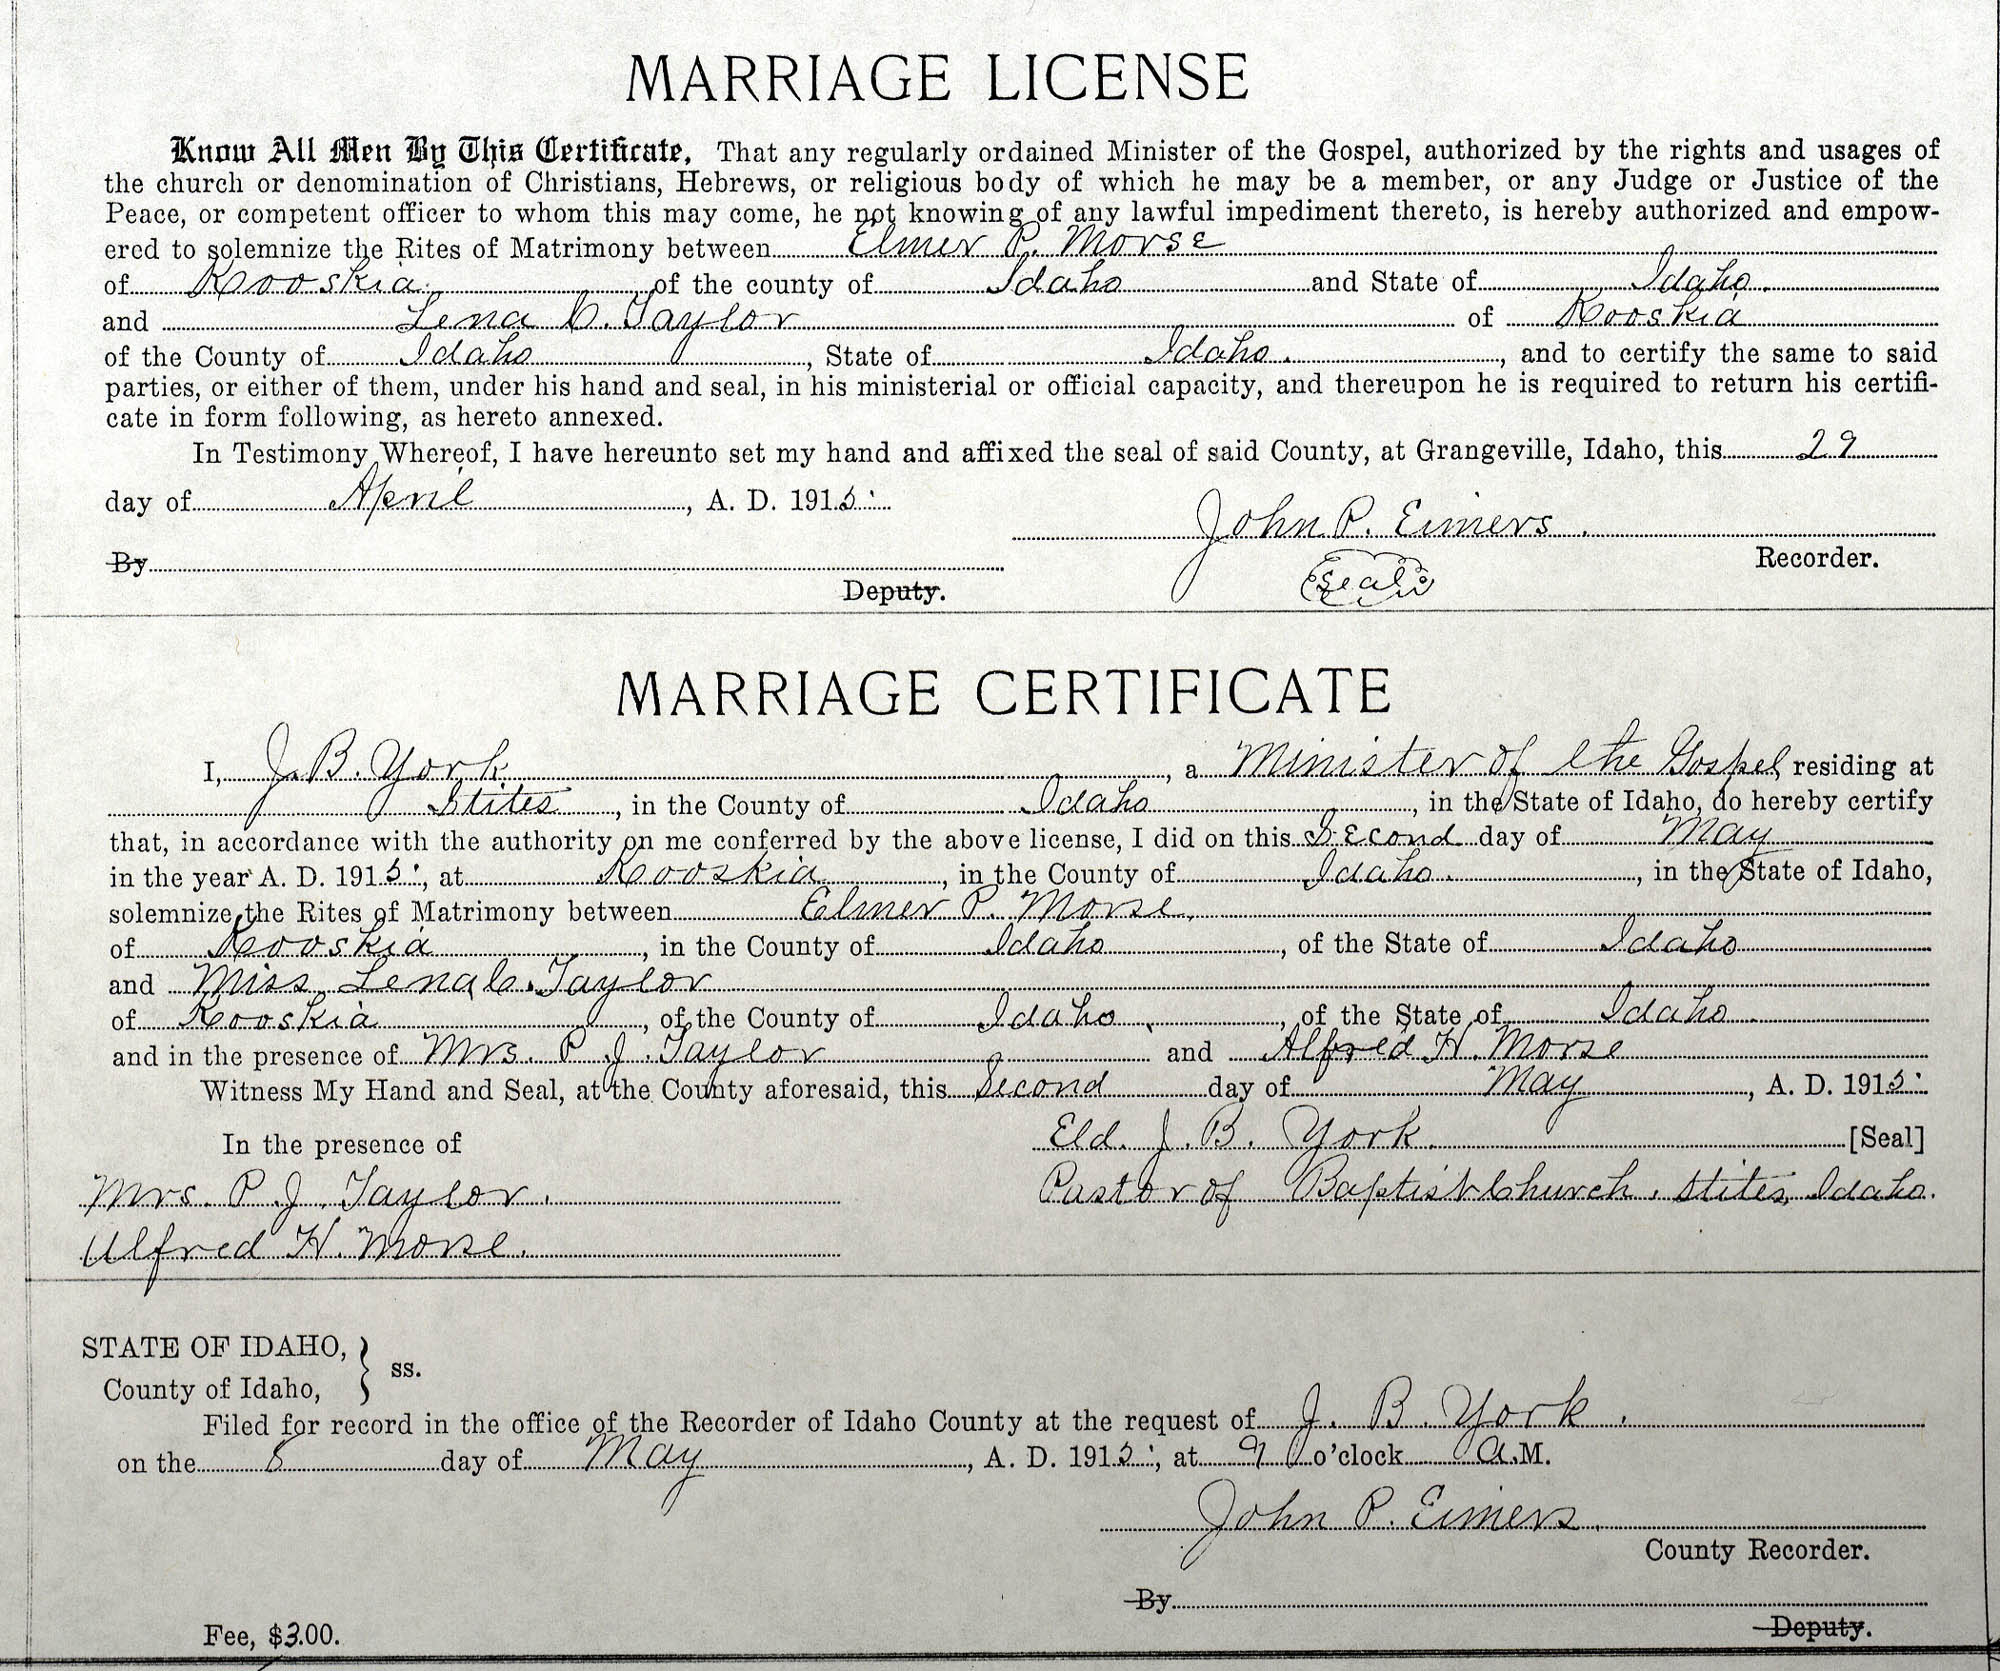 MARRIAGE LICENSE
Know All Men By This Certificate, That any regularly ordained Minister of the Gospel, authorized by the rights and usages of
the church or denomination of Christians, Hebrews, or religious body of which he may be a member, or any Judge or Justice of the
Peace, or competent officer to whom this may come, he not knowing of any lawful impediment thereto, is hereby authorized and empow-
ered to solemnize the Rites of Matrimony between Elmer P. Morse
of Kooskia of the county of Idaho and State of Idaho.
and Lena C. Taylor of Kooskia
of the County of Idaho, State of Idaho., and to certify the same to said
parties, or either of them, under his hand and seal, in his ministerial or official capacity, and thereupon he is required to return his certifi-
cate in form following, as hereto annexed.
In Testimony Whereof, I have hereunto set my hand and affixed the seal of said County, at Grangeville, Idaho, this 29
day of April, A. D. 1915.
John P. Eimers.
By
Recorder.
Seal
Deputy.
MARRIAGE CERTIFICATE
I, J. B. York, a Minister of the Gospel, residing at
Stites, in the County of Idaho, in the State of Idaho, do hereby certify
that, in accordance with the authority on me conferred by the above license, I did on this Second day of May
in the year A. D. 1915, at Kooskia, in the County of Idaho., in the State of Idaho,
solemnize the Rites of Matrimony between Elmer P. Morse.
of Kooskia, in the County of Idaho, of the State of Idaho
and Miss Lena C. Taylor
of Kooskia, of the County of Idaho., of the State of Idaho.
and in the presence of Mrs. P. J. Taylor and Alfred H. Morse
Witness My Hand and Seal, at the County aforesaid, this Second day of May, A. D. 1915.
In the presence of
Eld. J. B. York. [Seal]
Mrs. P. J. Taylor.
Pastor of Baptist Church. Stites, Idaho.
Alfred H. Morse.
STATE OF IDAHO, } ss.
County of Idaho,
Filed for record in the office of the Recorder of Idaho County at the request of J. B. York.
on the 8 day of May, A. D. 1915, at 9 o'clock A.M.
John P. Eimers.
County Recorder.
By
Deputy.
Fee, $3.00.